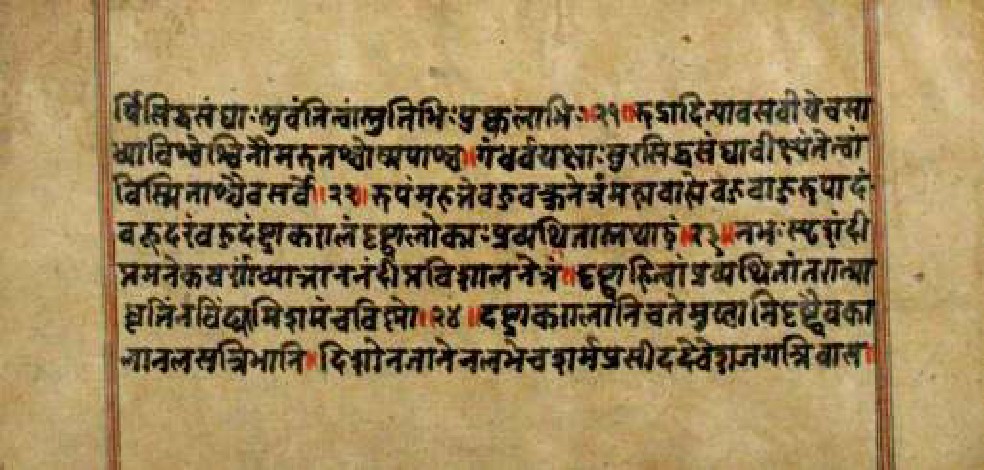 र्षिसिद्धसंघाः स्तुवंतित्वांस्तुतिभिः पुष्कलाभिः॥२१॥रुद्रादित्यावसवोयेचसा
ध्याविश्वेश्विनौमरुतश्चोष्मपाश्च॥गंधर्वयक्षाःसुरसिद्धसंघावीक्ष्यंतेत्वां
विस्मिताश्चैवसर्वे॥२२॥रुपंमहत्तेबहुवक्त्रनेत्रंमहाबाहोबहुबाहूरुपादं
बहूदरंबहुदंष्ट्राकरालंदृष्ट्वालोकाःप्रव्यथितास्तथाहं॥२३॥नभःस्पृशंदी
प्तमनेकवर्णंव्यात्ताननंदीप्तविशालनेत्रं॥दृष्ट्वाहित्वांप्रव्यथितांतरात्मा
धृतिंनविंद्यामिशमंचविष्णो॥२४॥दंष्ट्राकरालानिचतेमुखानिदृष्ट्वैवका
लानलसन्निभानि॥दिशोनजानेनलभेचशर्मप्रसीददेवेशजगन्निवास॥